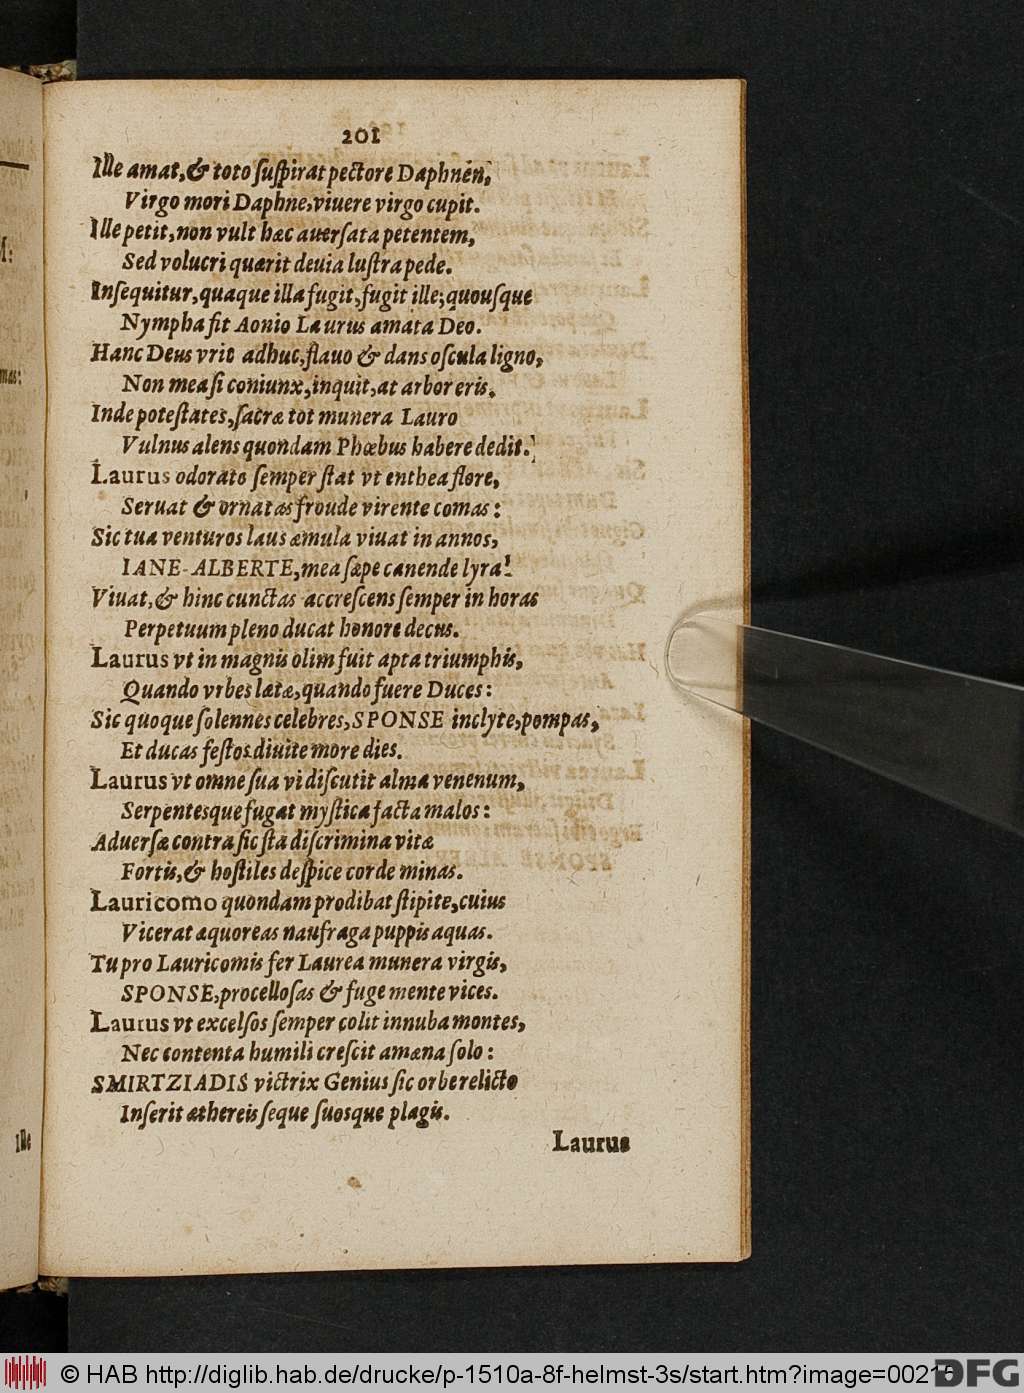 201
Ille amat, & toto suspirat pectore Daphnen,
Virgo mori Daphne, viuere virgo cupit.
Ille petit, non vult hæc auersata petentem,
Sed volucri quærit deuia lustra pede.
Insequitur, quaque illa fugit, fugit ille; quousque
Nympha fit Aonio Laurus amata Deo.
Hanc Deus vrit adhuc, flauo & dans oscula ligno,
Non mea si coniunx, inquit, at arbor eris.
Inde potestates, sacræ tot munera Lauro
Vulnus alens quondam Phœbus habere dedit.
Laurus odorato semper stat vt enthea flore,
Seruat & ornatas froude virente comas:
Sic tua venturos laus æmula viuat in annos,
IANE-ALBERTE, mea sæpe canende lyra!
Viuat, & hinc cunctas accrescens semper in horas
Perpetuum pleno ducat honore decus.
Laurus vt in magnis olim fuit apta triumphis,
Quando vrbes lætæ, quando fuere Duces:
Sic quoque solennes celebres, SPONSE inclyte, pompas,
Et ducas festos diuite more dies.
Laurus vt omne sua vi discutit alma venenum,
Serpentesque fugat mystica facta malos:
Aduersæ contra sic sta discrimina vitæ
Fortis, & hostiles despice corde minas.
Lauricomo quondam prodibat stipite, cuius
Vicerat æquoreas naufraga puppis aquas.
Tu pro Lauricomis fer Laurea munera virgis,
SPONSE, procellosas & fuge mente vices.
Laurus vt excelsos semper colit innuba montes,
Nec contenta humili crescit amæna solo:
SMIRTZIADIS victrix Genius sic orbe relicto
Inserit æthereis seque suosque plagis.
Laurus
Ille
© HAB http://diglib.hab.de/drucke/p-1510a-8f-helmst-3s/start.htm?image=00215
DFG